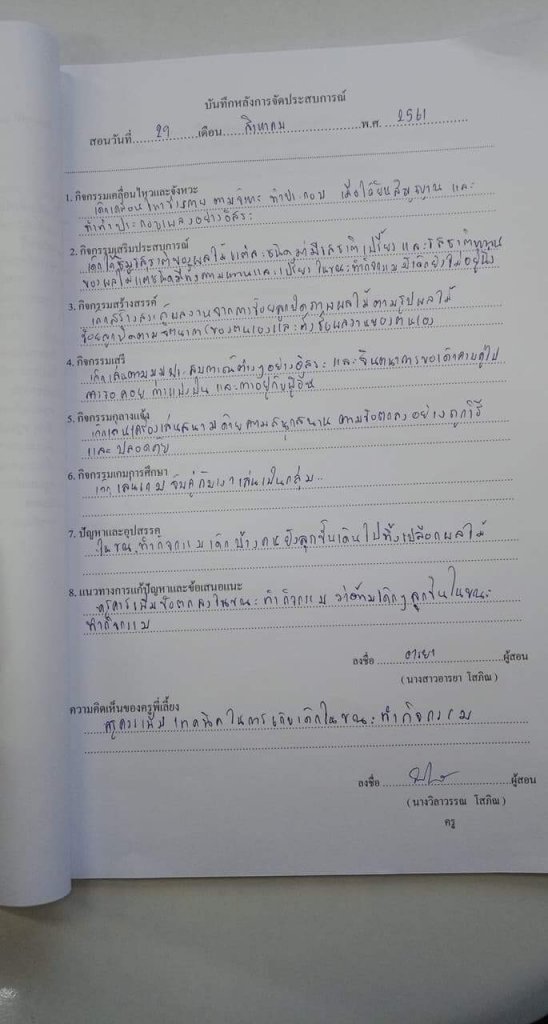 บันทึกหลังการจัดประสบการณ์
สอนวันที่ 29 เดือน สิงหาคม พ.ศ. 2561
1. กิจกรรมเคลื่อนไหวและจังหวะ
เด็กเคลื่อนไหวร่างกาย ตามจังหวะ คำประกอบ เมื่อได้ยินสัญญาณ และ
ทำท่าประกอบเพลงอย่างอิสระ
2. กิจกรรมเสริมประสบการณ์
เด็กได้ชิมรสชาติของผลไม้ แต่ละชนิดว่ามีรสชาติเปรี้ยว และรสชาติหวาน
ของผลไม้แต่ชนิดมีทั้งหวานและเปรี้ยว ในขณะทำกิจกรรมมีเด็กยังไม่อยู่นิ่ง
3. กิจกรรมสร้างสรรค์
เด็กสร้างสรรค์ผลงานจากการ ภาพผลไม้ตามรูปผลไม้
ตามจินตนาการของตนเองและตั้งชื่อผลงานของตนเอง
4. กิจกรรมเสรี
เด็กเล่นตามมุมประสบการณ์ต่างๆอย่างอิสระ และจินตนาการของเด็กควบคู่ไป
การรอคอย การแบ่งปัน และการอยู่กับผู้อื่น
5. กิจกรรมกลางแจ้ง
เด็กเล่นเครื่องเล่นสนามด้วยความสนุกสนาน ตามข้อตกลงอย่างถูกวิธี
และ ปลอดภัย
6. กิจกรรมเกมการศึกษา
เด็กเล่นเกม จับคู่กับเงา เล่นเป็นกลุ่ม
7. ปัญหาและอุปสรรค
ในขณะทำกิจกรรมเด็กบางคนยังลุกขึ้นเดินไปทิ้งเปลือกผลไม้
8. แนวทางการแก้ปัญหาและข้อเสนอแนะ
ครูควรเพิ่มข้อตกลงในขณะทำกิจกรรม ว่าห้ามเด็กๆลุกขึ้นในขณะ
ทำกิจกรรม
ลงชื่อ อารยา ผู้สอน
(นางสาวอารยา โสภิณ)
ความคิดเห็นของครูพี่เลี้ยง
ครูควรเพิ่ม เทคนิคในการเก็บเด็กในขณะทำกิจกรรม
ลงชื่อ ผู้สอน
(นางวิลาวรรณ โสภิณ)
ครู